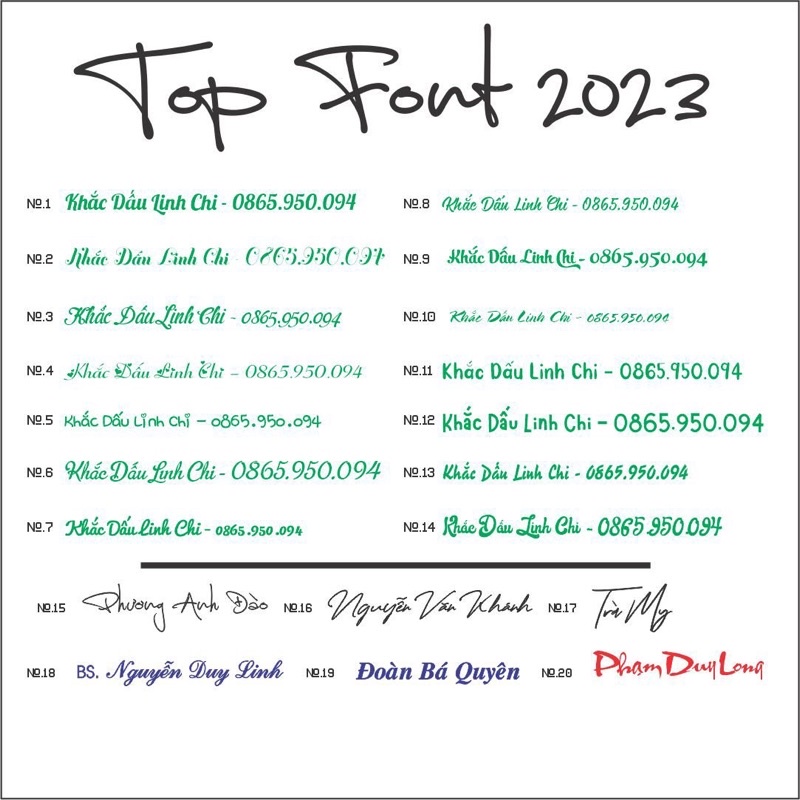 Top Font 2023
№.1 Khắc Dấu Linh Chi - 0865.950.094
№.2 Khắc Dấu Linh Chi - 0865.950.094
№.3 Khắc Dấu Linh Chi - 0865.950.094
№.4 Khắc Dấu Linh Chi - 0865.950.094
№.5 Khắc Dấu Linh Chi - 0865.950.094
№.6 Khắc Dấu Linh Chi - 0865.950.094
№.7 Khắc Dấu Linh Chi - 0865.950.094
№.8 Khắc Dấu Linh Chi - 0865.950.094
№.9 Khắc Dấu Linh Chi - 0865.950.094
№.10 Khắc Dấu Linh Chi - 0865.950.094
№.11 Khắc Dấu Linh Chi - 0865.950.094
№.12 Khắc Dấu Linh Chi - 0865.950.094
№.13 Khắc Dấu Linh Chi - 0865.950.094
№.14 Khắc Dấu Linh Chi - 0865.950.094
№.15 Phương Anh Đào №.16 Nguyễn Văn Khánh №.17 Trà My
№.18 BS. Nguyễn Duy Linh №.19 Đoàn Bá Quyên №.20 Phạm Duy Long